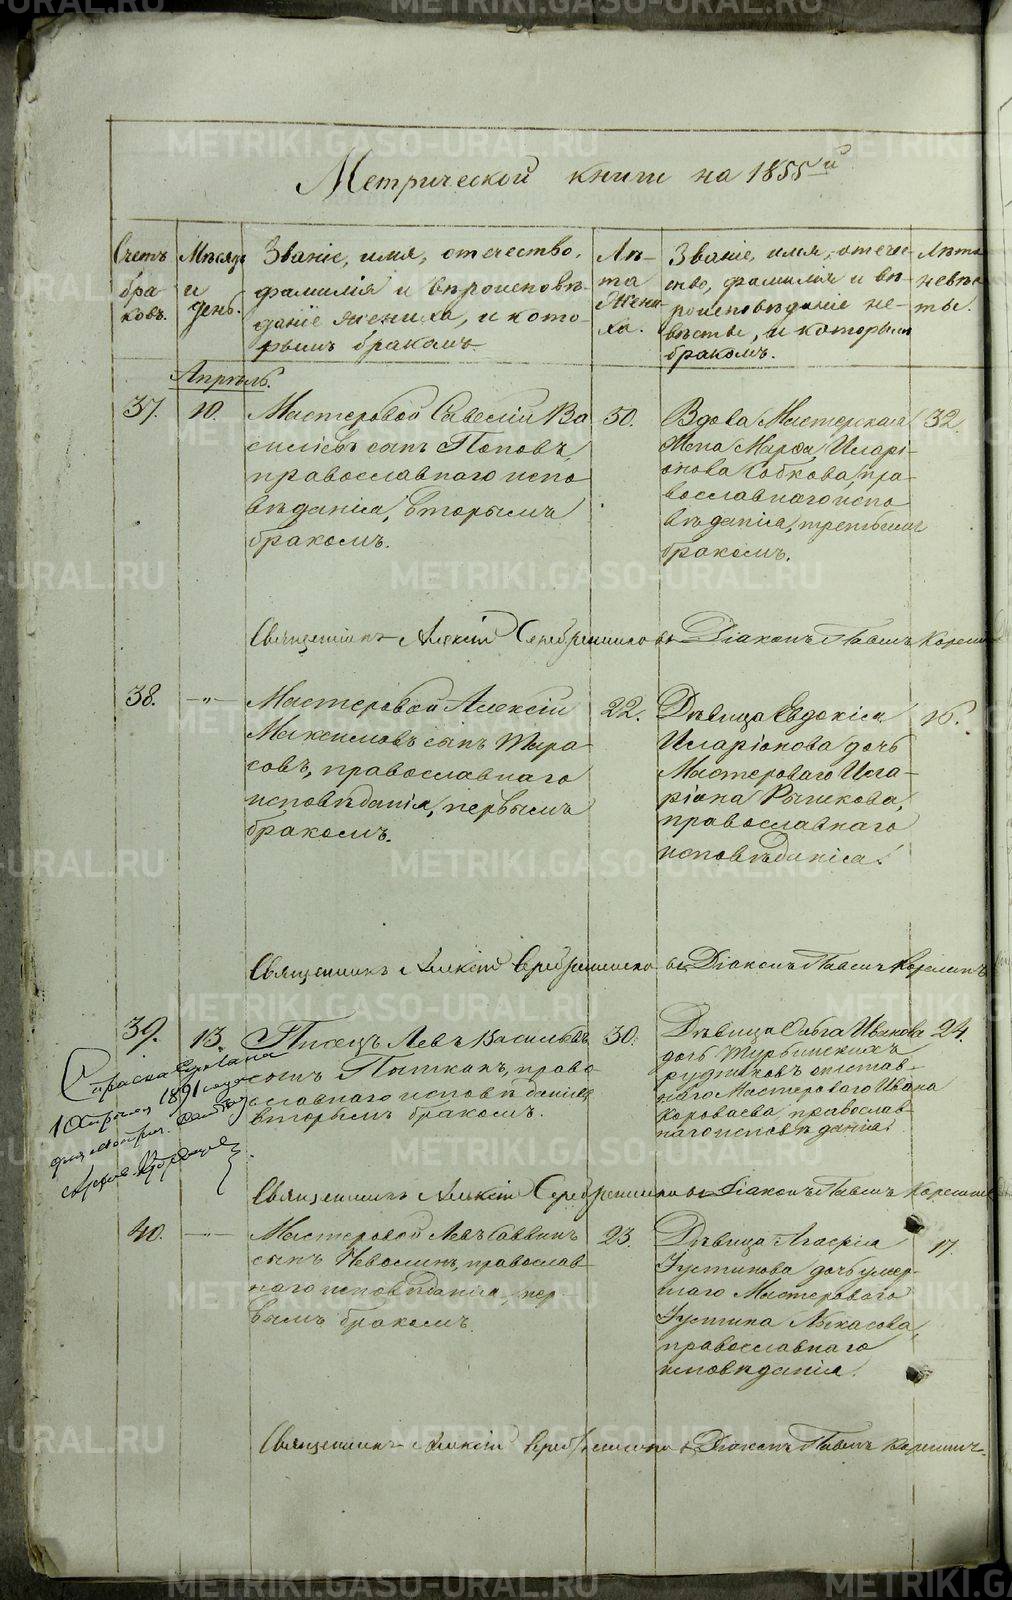 Метрической книги на 1855й
Счетъ браковъ.
Мѣсяцъ и день.
Званіе, имя, отечество,
фамилія и вѣроисповѣ-
даніе жениха, и кото-
рымъ бракомъ.
Лѣ-
та
жени
ха.
Званіе, имя, отече-
ство, фамилія и вѣ-
роисповѣданіе не-
вѣсты, и которымъ
бракомъ.
Лѣта
невѣс
ты.
Апрѣль.
37.
10.
Мастеровой Савелій Ва
силіевъ сынъ Поповъ,
православнаго испо
вѣданія, вторымъ
бракомъ.
50.
Вдова Мастерская
Жена Марѳа Иларі-
онова Собкова, пра-
вославнаго испо
вѣданія, третьимъ
бракомъ.
32.
Священникъ Алексій Серебренниковъ Діаконъ Павелъ
38.
-"-
Мастеровой Алексій
Максимовъ сынъ Тара
совъ, православнаго
исповѣданія, первымъ
бракомъ.
22.
Дѣвица Евдокія
Иларіонова дочь
Мастероваго Ила-
ріона Рычкова,
православнаго
исповѣданія.
16.
Священникъ Алексій Серебренниковъ Діаконъ Павелъ
39.
13.
Писецъ Левъ Васильевъ
сынъ Пяткинъ, право
славнаго исповѣданія
вторымъ бракомъ.
30.
Дѣвица Ольга Иванова
дочь Турьинскихъ
рудниковъ отстав-
наго Мастероваго Ивана
Короваева, православ
наго исповѣданія.
24.
Справка сдѣлана
10 1891 года
40.
Мастеровой Левъ Саввинъ
сынъ Неволинъ, православ
наго исповѣданія, пер-
вымъ бракомъ.
23.
Дѣвица Агафія
Іустинова дочь умер-
шаго Мастероваго
Іустина
православнаго
исповѣданія.
17.
Священникъ Алексій Серебренниковъ Діаконъ Павелъ
Священникъ Алексій Серебренниковъ Діаконъ Павелъ
METRIKI.GASO-URAL.RU